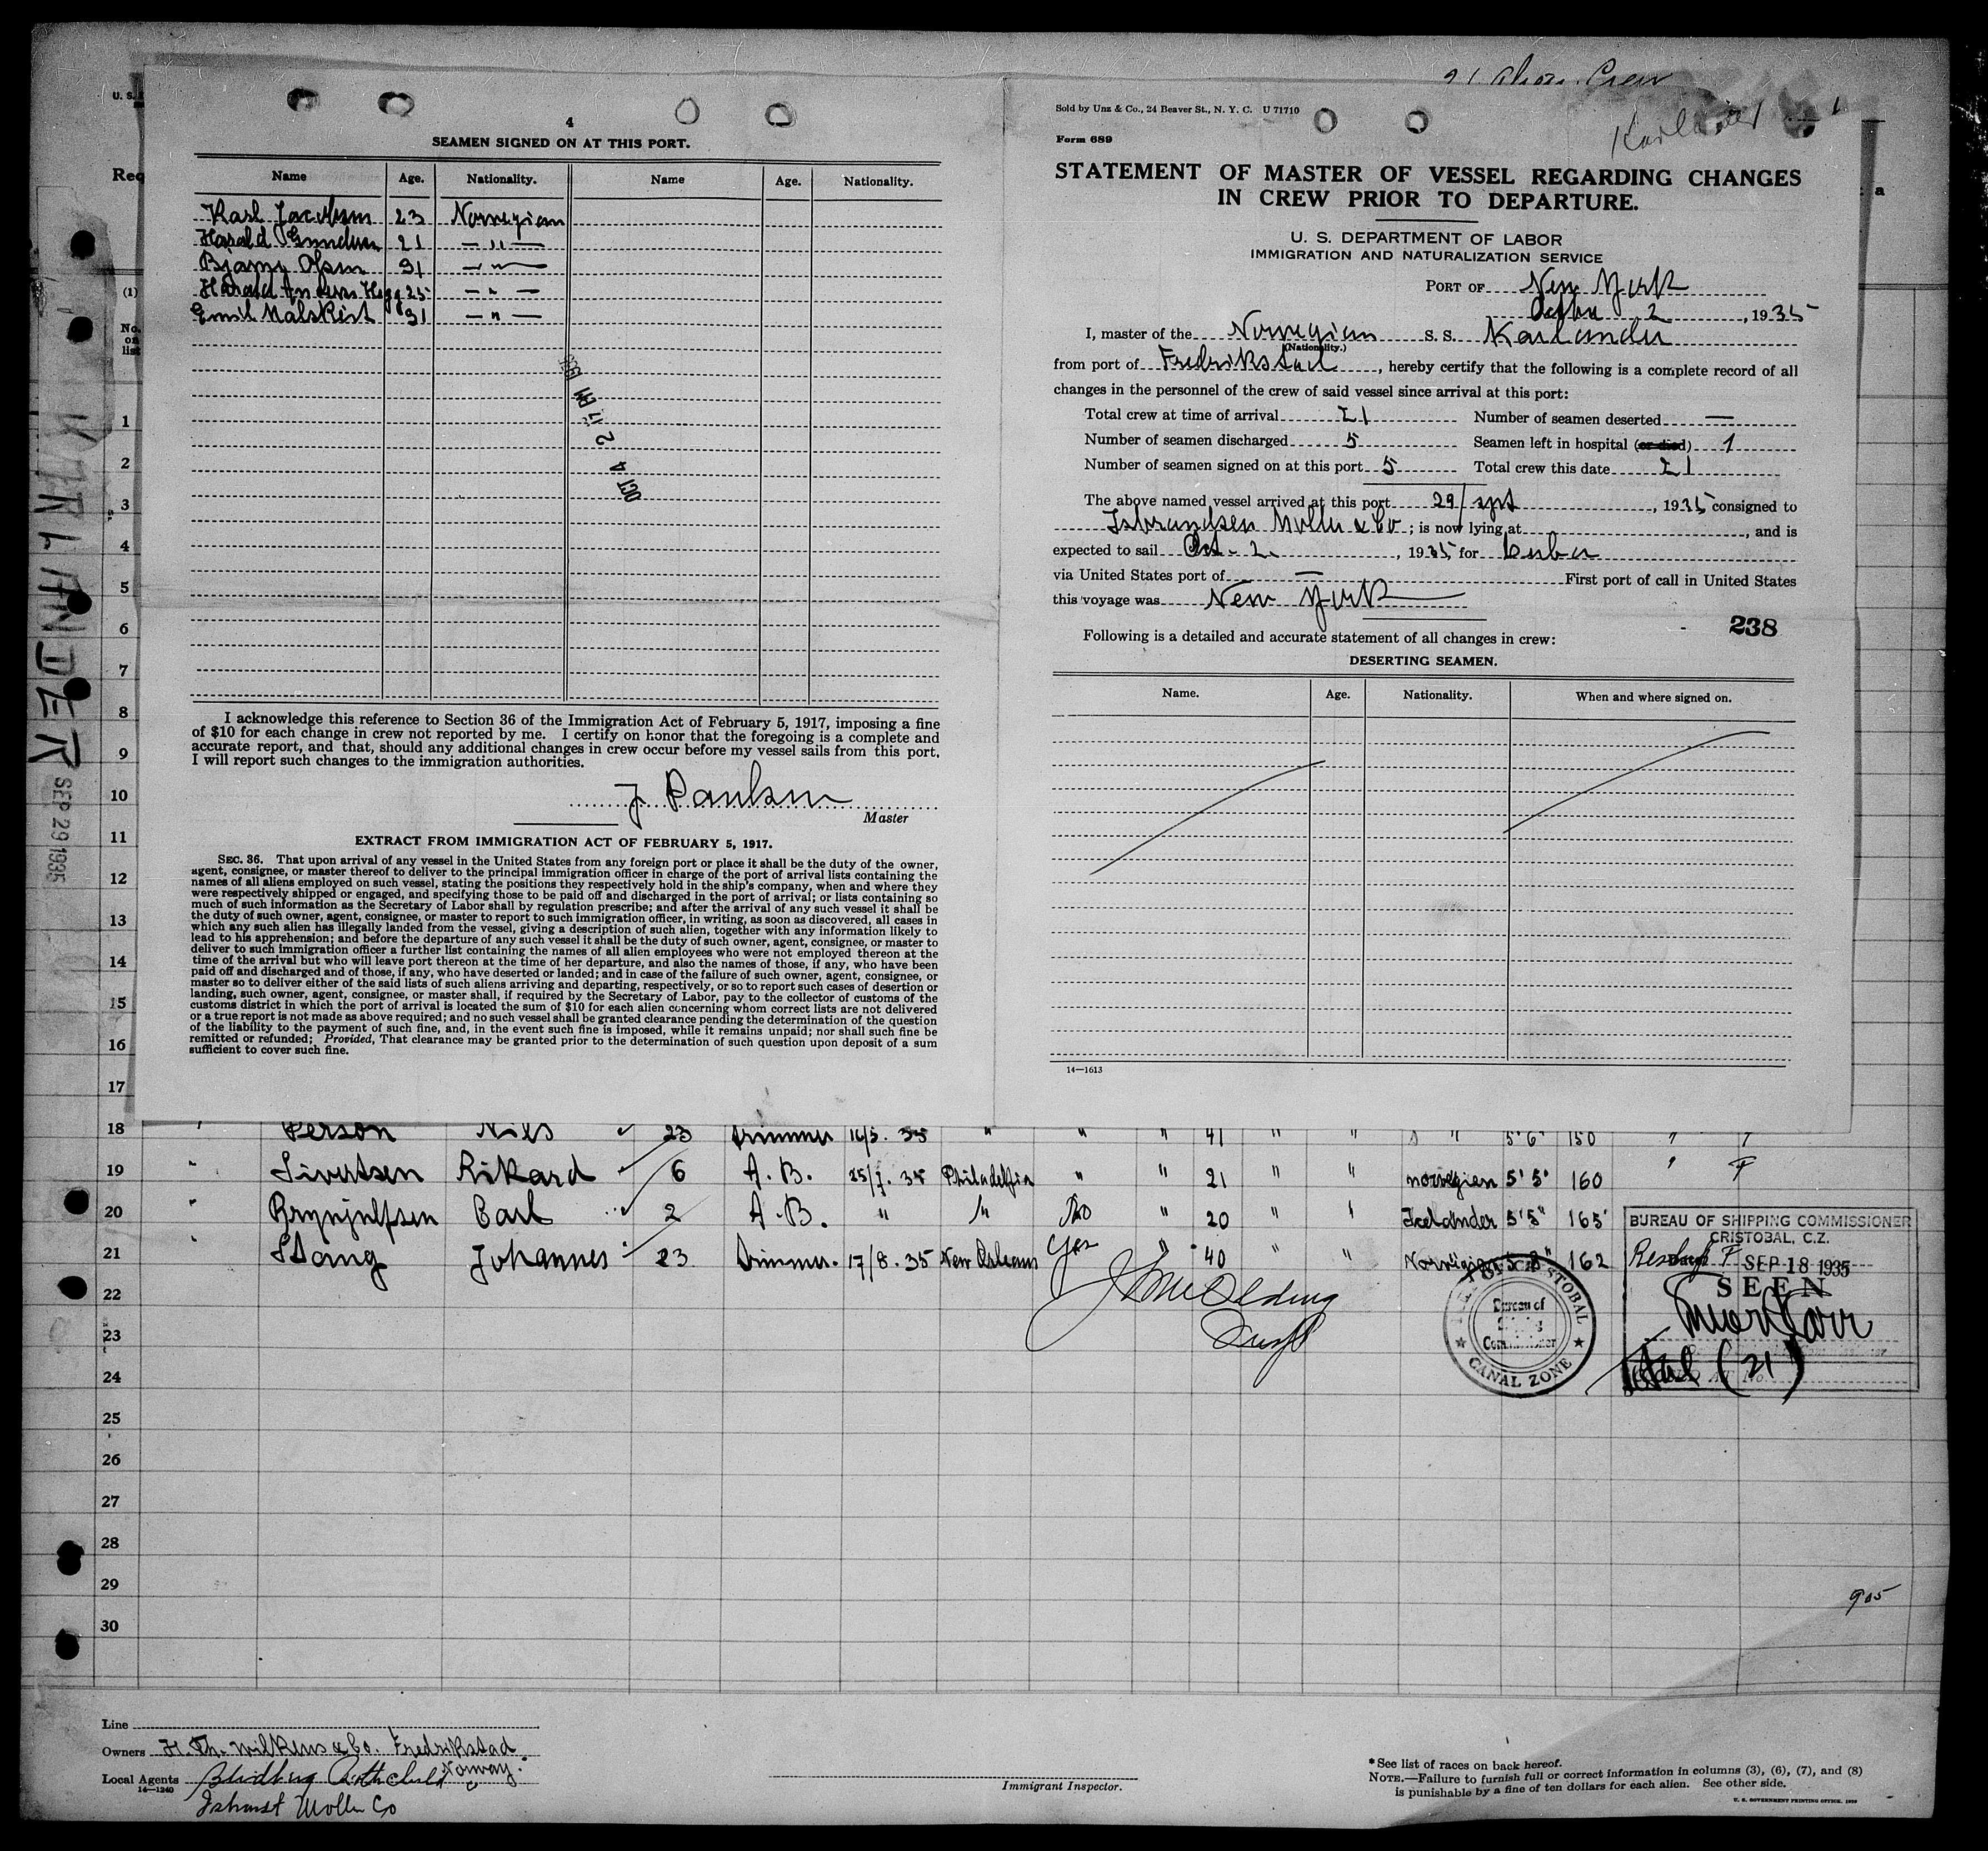 4
SEAMEN SIGNED ON AT THIS PORT.
Name Age. Nationality. Name Age. Nationality.
Karl Jacobsen 23 Norwegian
Harald Gundersen 21 — " —
Bjarne Olsen 31 — " —
Harald Anders Hegg 25 — " —
Emil Malskist 31 — " —
OCT 4 2 17 PM 1935
I acknowledge this reference to Section 36 of the Immigration Act of February 5, 1917, imposing a fine
of $10 for each change in crew not reported by me. I certify on honor that the foregoing is a complete and
accurate report, and that, should any additional changes in crew occur before my vessel sails from this port,
I will report such changes to the immigration authorities.
J Paulsen
Master
EXTRACT FROM IMMIGRATION ACT OF FEBRUARY 5, 1917.
SEC. 36. That upon arrival of any vessel in the United States from any foreign port or place it shall be the duty of the owner,
agent, consignee, or master thereof to deliver to the principal immigration officer in charge of the port of arrival lists containing the
names of all aliens employed on such vessel, stating the positions they respectively hold in the ship's company, when and where they
were respectively shipped or engaged, and specifying those to be paid off and discharged in the port of arrival; or lists containing so
much of such information as the Secretary of Labor shall by regulation prescribe; and after the arrival of any such vessel it shall be
the duty of such owner, agent, consignee, or master to report to such immigration officer, in writing, as soon as discovered, all cases in
which any such alien has illegally landed from the vessel, giving a description of such alien, together with any information likely to
lead to his apprehension; and before the departure of any such vessel it shall be the duty of such owner, agent, consignee, or master to
deliver to such immigration officer a further list containing the names of all alien employees who were not employed thereon at the
time of the arrival but who will leave port thereon at the time of her departure, and also the names of those, if any, who have been
paid off and discharged and of those, if any, who have deserted or landed; and in case of the failure of such owner, agent, consignee, or
master so to deliver either of the said lists of such aliens arriving and departing, respectively, or so to report such cases of desertion or
landing, such owner, agent, consignee, or master shall, if required by the Secretary of Labor, pay to the collector of customs of the
customs district in which the port of arrival is located the sum of $10 for each alien concerning whom correct lists are not delivered
or a true report is not made as above required; and no such vessel shall be granted clearance pending the determination of the question
of the liability to the payment of such fine, and, in the event such fine is imposed, while it remains unpaid; nor shall such fine be
remitted or refunded; Provided, That clearance may be granted prior to the determination of such question upon deposit of a sum
sufficient to cover such fine.
Crew
Sold by Unz & Co., 24 Beaver St., N. Y. C. U 71710
Form 689
STATEMENT OF MASTER OF VESSEL REGARDING CHANGES
IN CREW PRIOR TO DEPARTURE.
U. S. DEPARTMENT OF LABOR
IMMIGRATION AND NATURALIZATION SERVICE
PORT OF New York
2, 1935
I, master of the Norwegian S. S. Karlander
(Nationality.)
from port of Fredrikstad, hereby certify that the following is a complete record of all
changes in the personnel of the crew of said vessel since arrival at this port:
Total crew at time of arrival 21 Number of seamen deserted —
Number of seamen discharged 5 Seamen left in hospital (or died) 1
Number of seamen signed on at this port 5 Total crew this date 21
The above named vessel arrived at this port 29/sept, 1935 consigned to
Isbrandtsen Moller & Co; is now lying at , and is
expected to sail Oct. 2., 1935 for Cuba
via United States port of — First port of call in United States
this voyage was New York
238
Following is a detailed and accurate statement of all changes in crew:
DESERTING SEAMEN.
Name. Age. Nationality. When and where signed on.
14—1613
U. S.
Req
(1)
No. on list
KARLANDER
SEP 29 1935
1
2
3
4
5
6
7
8
9
10
11
12
13
14
15
16
17
18 " Person Nils 23 Trimmer 16/5. 35 " " " 41 " " " 5'6" 150 "
19 " Sivertsen Rikard 6 A. B. 25/7. 35 Philadelfia " " 21 " " norvegien 5'5" 160 "
20 " Brynjulfsen Carl 2 A. B. " " No " 20 " " Icelander 5'5" 165
21 " Stang Johannes 23 Trimmer. 17/8. 35 New Orleans Yes " 40 " " Norvegien 5'8" 162
22
23
24
25
26
27
28
29
30
BUREAU OF SHIPPING COMMISSIONER
CRISTOBAL, C.Z.
SEP 18 1935
SEEN
(21)
PORT OF CRISTOBAL
Bureau of Shipping Commissioner
CANAL ZONE
905
Line
Owners H. Th. Wilkens & Co. Fredrikstad.
Norway.
Local Agents
14—1240
Moller Co
Immigrant Inspector.
* See list of races on back hereof.
NOTE.—Failure to furnish full or correct information in columns (3), (6), (7), and (8)
is punishable by a fine of ten dollars for each alien. See other side.
U. S. GOVERNMENT PRINTING OFFICE.